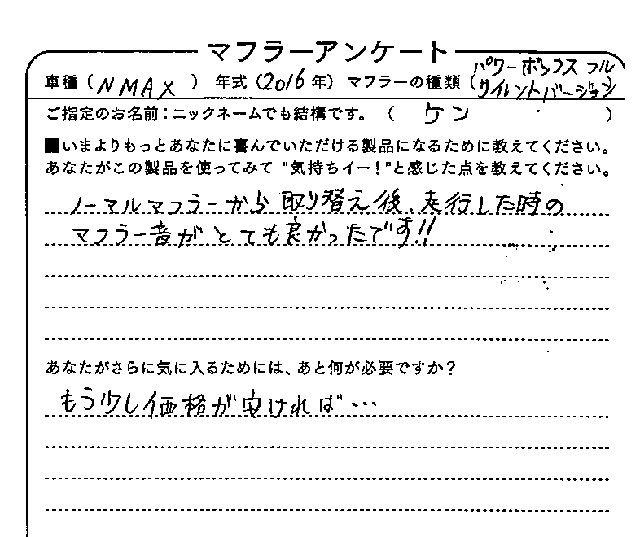 マフラーアンケート
車種（NMAX） 年式（2016年） マフラーの種類（パワーボックス フル サイレントバージョン
ご指定のお名前：ニックネームでも結構です。（ ケン ）
■いまよりもっとあなたに喜んでいただける製品になるために教えてください。
あなたがこの製品を使ってみて "気持ちイー！"と感じた点を教えてください。
ノーマルマフラーから取り替え後、走行した時の
マフラー音がとても良かったです!!
あなたがさらに気に入るためには、あと何が必要ですか？
もう少し価格が安ければ…